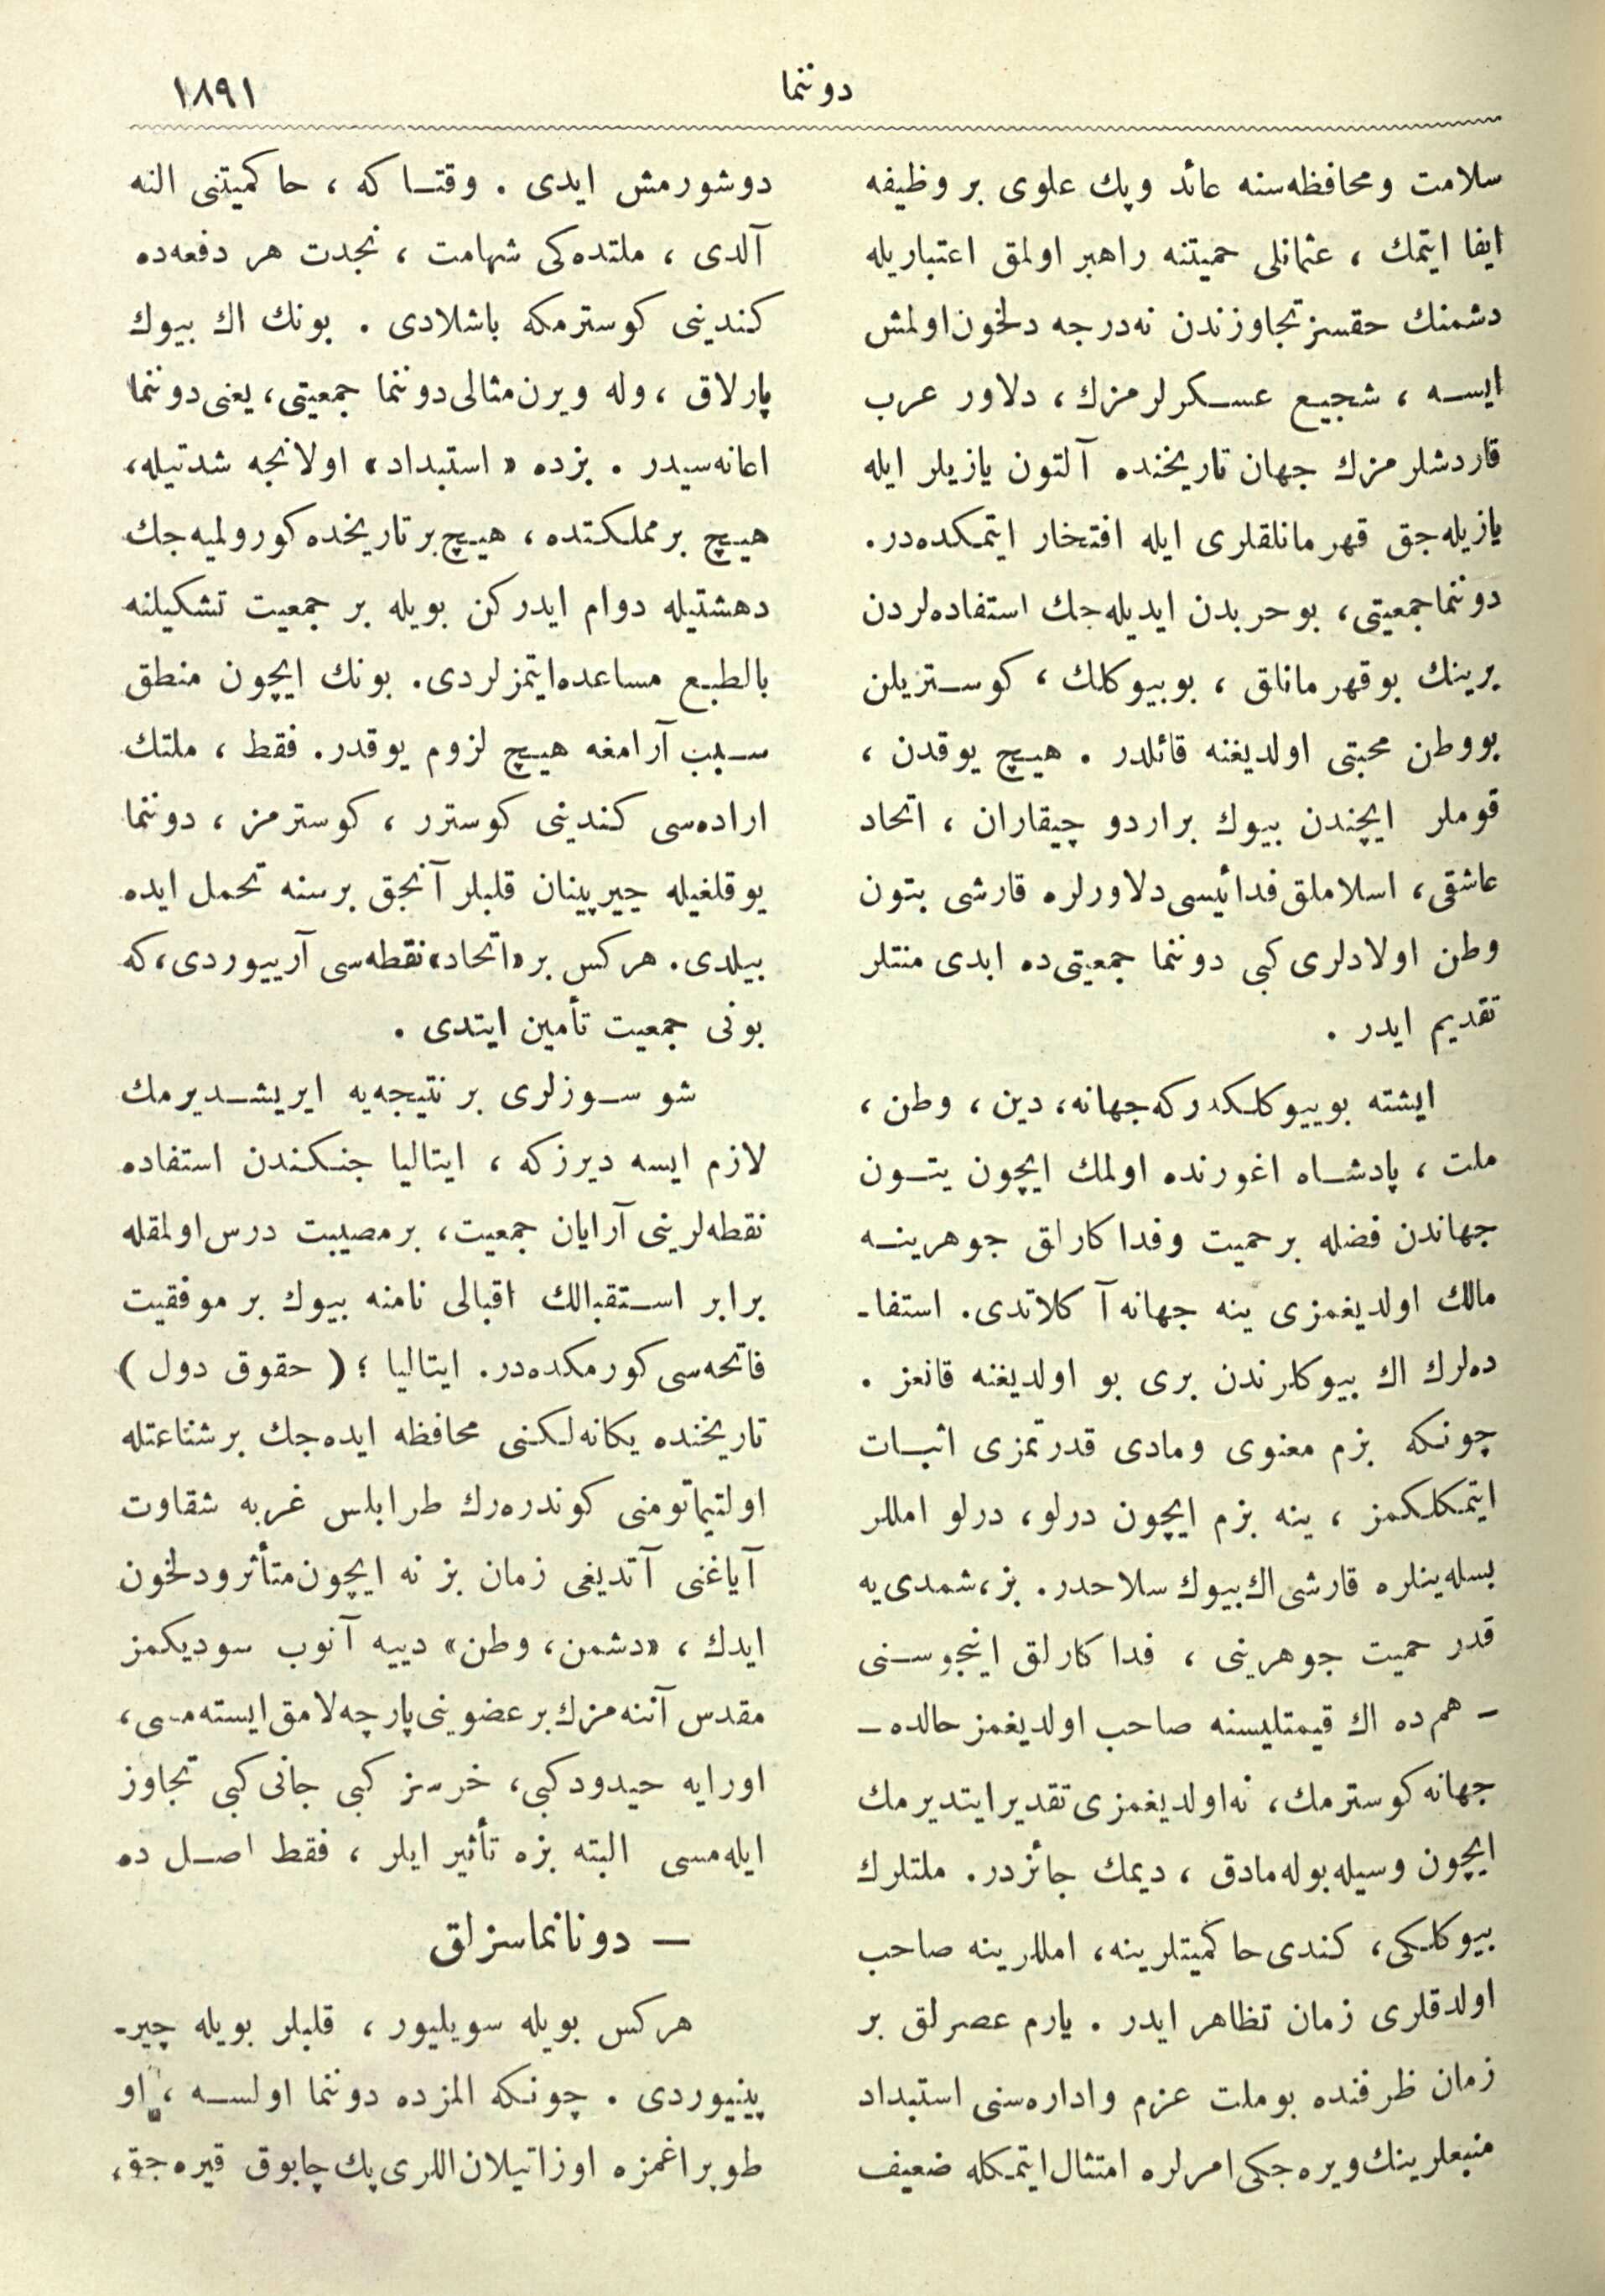 دوننما
١٨٩١
سلامت ومحافظه‌سنه عائد وپك علوی بر وظیفه
ایفا ایتمك ، عثمانلی حمیتنه راهبر اولمق اعتباریله
دشمنك حقسز تجاوزندن نه‌درجه دلخون‌اولمش
ایسـه ، شجیـع عسـكرلرمزك ، دلاور عرب
قاردشلرمزك جهان تاریخنده آلتون یازیلر ایله
یازیله‌جق قهرمانلقلری ایله افتخار ایتمكده‌در.
دوننما جمعیتی، بوحربدن ایدیله‌جك استفاده‌لردن
برینك بوقهرمانلق ، بوبیوكلك ، كوسـتریلن
بووطن محبتی اولدیغنه قائلدر . هیـچ یوقدن ،
قوملر ایچندن بیوك براردو چیقاران ، اتحاد
عاشقی، اسلاملق‌فدائیسی دلاورلره قارشی بتون
وطن اولادلری كبی دوننما جمعیتی‌ده ابدی منتلر
تقدیم ایدر .
ایشته بوبیوكلكدركه‌جهانه، دین ، وطن ،
ملت ، پادشـاه اغورنده اولمك ایچون بتـون
جهاندن فضله برحمیت وفداكارلق جوهرینـه
مالك اولدیغمزی ینه جهانه آكلاتدی. استفا-
ده‌لرك اك بیوكلرندن بری بو اولدیغنه قانعز .
چونكه بزم معنوی ومادی قدرتمزی اثبـات
ایتمكلكمز ، ینه بزم ایچون درلو، درلو امللر
بسله‌ینلره قارشی‌اك‌بیوك سلاحدر. بز،شمدی‌یه
قدر حمیت جوهرینی ، فداكارلق اینجوسـنی
– هم‌ده اك قیمتلیسنه صاحب اولدیغمز حالده –
جهانه‌كوسترمك، نه‌اولدیغمزی‌تقدیرایتدیرمك
ایچون وسیله‌بوله‌مادق ، دیمك جائزدر. ملتلرك
بیوكلكی، كندی حاكمیتلرینه، امللرینه صاحب
اولدقلری زمان تظاهر ایدر . یارم عصرلق بر
زمان ظرفنده بوملت عزم واداره‌سنی استبداد
منبعلرینك‌ویره‌جكی‌امرلره امتثال‌ایتمكله ضعیف
دوشورمش ایدی . وقتـا كه ، حاكمیتنی النه
آلدی ، ملتده‌كی شهامت ، نجدت هر دفعه‌ده
كندینی كوسترمكه باشلادی . بونك اك بیوك
پارلاق ، وله ویرن‌مثالی‌دوننما جمعیتی، یعنی‌دوننما
اعانه‌سیدر . بزده « استبداد» اولانجه شدتیله،
هیـچ برمملكتده ، هیـچ‌برتاریخده‌كورولمیه‌جك
دهشتیله دوام ایدركن بویله بر جمعیت تشكیلنه
بالطبـع مساعده‌ایتمزلردی. بونك ایچون منطق
سـبب آرامغه هیـچ لزوم یوقدر. فقط ، ملتك
اراده‌سی كندینی كوسترر ، كوسترمز ، دوننما
یوقلغیله چیرپینان قلبلر آنجق برسنه تحمل ایده
بیلدی. هركس بر«اتحاد»نقطه‌سی آرییوردی،كه
بونی جمعیت تأمین ایتدی .
شو سـوزلری بر نتیجه‌یه ایریشـدیرمك
لازم ایسه دیرزكه ، ایتالیا جنـكندن استفاده
نقطه‌لرینی آرایان جمعیت، برمصیبت درس‌اولمقله
برابر اسـتقبالك اقبالی نامنه بیوك بر موفقیت
فاتحه‌سی كورمكده‌در. ایتالیا ؛ ( حقوق دول )
تاریخنده یكانه‌لكنی محافظه ایده‌جك برشناعتله
اولتیماتومنی كوندره‌رك طرابلس غربه شقاوت
آیاغنی آتدیغی زمان بز نه ایچون‌متأثرودلخون
ایدك ، «دشمن، وطن» دییه آنوب سودیكمز
مقدس آننه‌مزك‌برعضوینی‌پارچه‌لامق‌ایسته‌مسی،
اورایه حیدودكبی، خرسز كبی جانی‌كبی تجاوز
ایله‌مسی البته بزه تأثیر ایلر ، فقط اصـل ده
— دونانماسزلق
هركس بویله سویلیور ، قلبلر بویله چیر-
پینیوردی . چونكه المزده دوننما اولسـه ، او
طوپراغمزه اوزاتیلان‌اللری‌پك‌چابوق قیره‌جق،